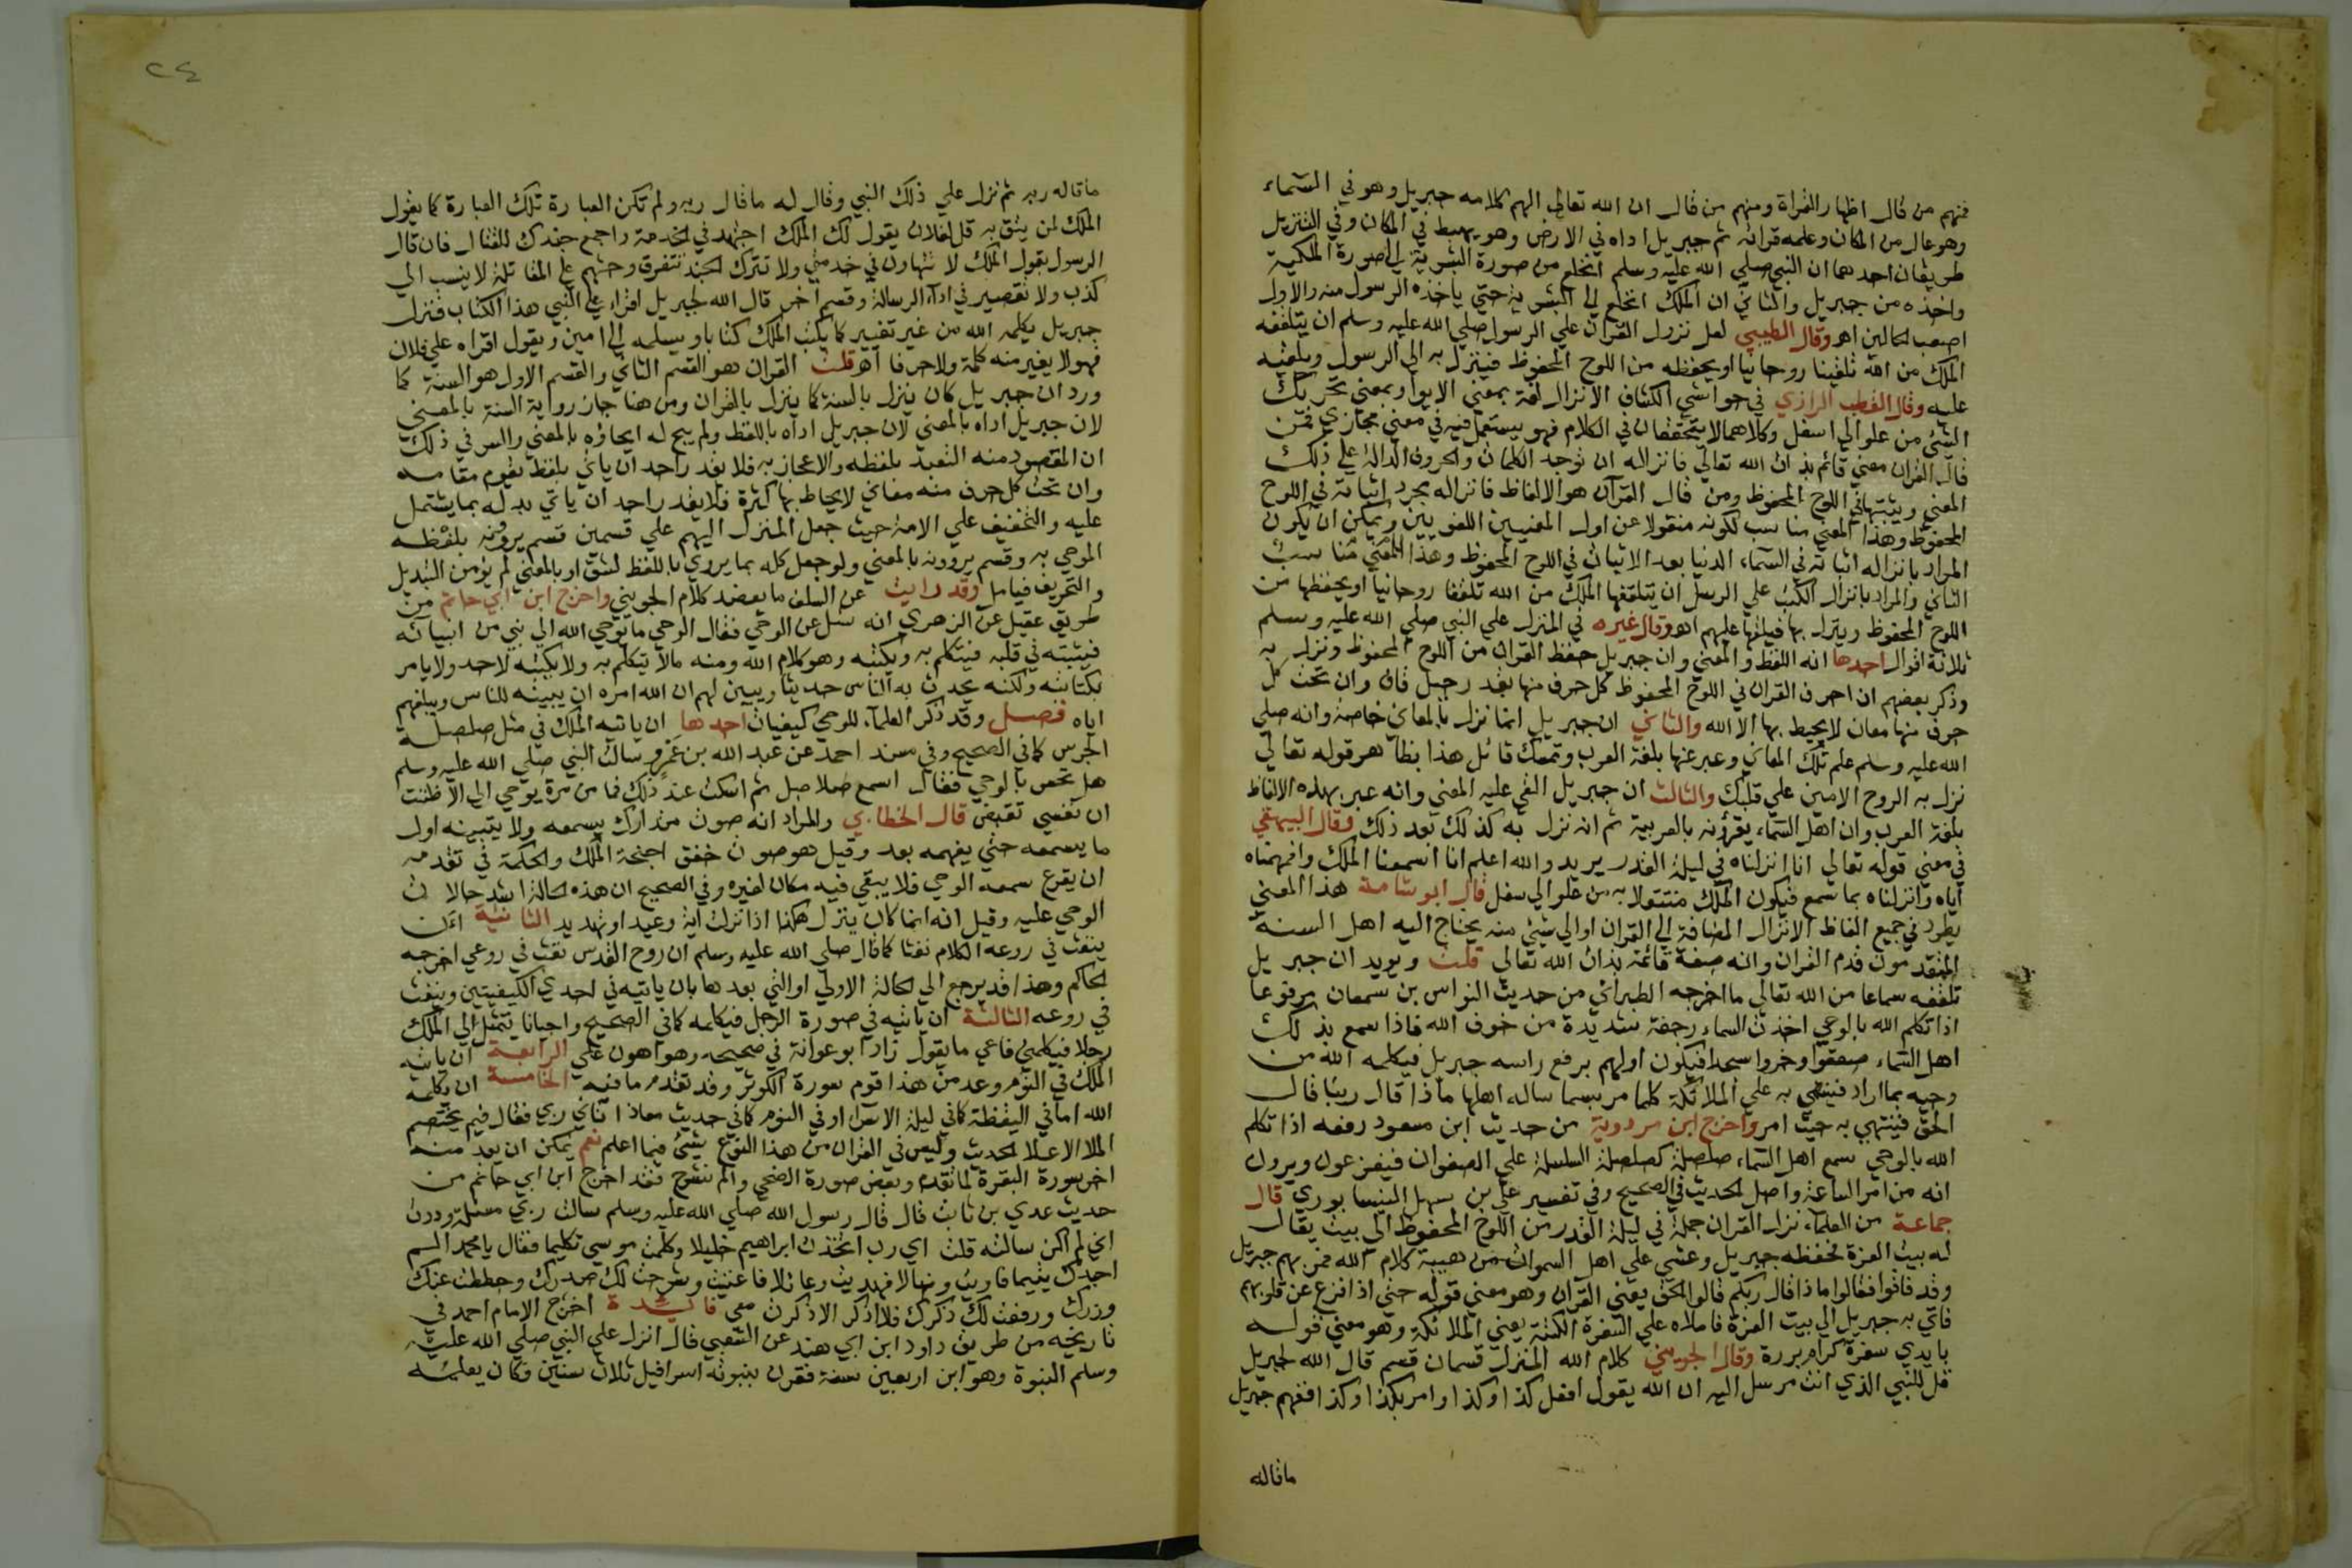 فمنهم من قال اظهار القراة ومنهم من قال ان الله تعالي الهم كلامه جبريل وهو في السماء
وهو عال من المكان وعلمه قراته ثم جبريل اداه في الارض وهو يهبط في المكان وفي التنزيل
طريقان احدهما ان النبي صلي الله عليه وسلم انخلع من صورة البشرية الي صورة الملكية
واخذه من جبريل والثاني ان الملك انخلع الي البشرية حتي ياخذه الرسول منه والاول
اصعب الحالين اهـ وقال الطيبي لعل نزول القران علي الرسول صلي الله عليه وسلم ان يتلقفه
الملك من الله تلقيا روحانيا او يحفظه من اللوح المحفوظ فينزل به الي الرسول ويلقيه
عليه وقال القطب الرازي في حواشي الكشاف الانزال لغة بمعني الايوا وبمعني تحريك
الشي من علو الي اسفل وكلاهما لا يتحققان في الكلام فهو يستعمل فيه في معني مجازي فمن
قال القران معني قائم بذات الله تعالي فانزاله ان توجد الكلمات والحروف الدالة علي ذلك
المعني ويثبتها في اللوح المحفوظ ومن قال القران هو الالفاظ فانزاله مجرد اثباته في اللوح
المحفوظ وهذا المعني مناسب لكونه منقولا عن اول المعنيين اللغويين ويمكن ان يكون
المراد بانزاله اثباته في السماء الدنيا بعد الاثبات في اللوح المحفوظ وهذا المعني مناسب
الثاني والمراد بانزال الكتب علي الرسل ان يتلقفها الملك من الله تلقفا روحانيا او يحفظها من
اللوح المحفوظ وينزل بها فيلقها عليهم اهـ وقال غيره في المنزل علي النبي صلي الله عليه وسلم
ثلاثة اقوال احدها انه اللفظ والمعني وان جبريل حفظ القران من اللوح المحفوظ ونزل به
وذكر بعضهم ان احرف القران في اللوح المحفوظ كل حرف منها بقدر رجبل قاف وان تحت كل
حرف منها معان لا يحيط بها الا الله والثاني ان جبريل انما نزل بالمعاني خاصة وانه صلي
الله عليه وسلم علم تلك المعاني وعبر عنها بلغة العرب وتمسك قائل هذا بظاهر قوله تعالي
نزل به الروح الامين علي قلبك والثالث ان جبريل القي عليه المعني وانه عبر بهذه الالفاظ
بلغة العرب وان اهل السماء يقرؤنه بالعربية ثم انه نزل به كذلك بعد ذلك وقال البيهقي
في معني قوله تعالي انا انزلناه في ليلة القدر يريد والله اعلم انا اسمعنا الملك وافهمناه
اياه وانزلناه بما سمع فيكون الملك منتقلا به من علو الي سفل قال ابو شامة هذا المعني
يطرد في جميع الفاظ الانزال المضافة الي القران او الي شيئ منه يحتاج اليه اهل السنة
المنقدمون قدم القران وانه صفة قائمة بذات الله تعالي قلت ويويد ان جبريل
تلقفه سماعا من الله تعالي ما اخرجه الطبراني من حديث النواس بن سمعان مرفوعا
اذا تكلم الله بالوحي اخذت السماء رجفة شديدة من خوف الله فاذا سمع بذلك
اهل السماء صعقوا وخروا سجدا فيكون اولهم يرفع راسه جبريل فيكلمه الله من
وحيه بما اراد فينتهي به علي الملائكة كلما مر بسما ساله اهلها ماذا قال ربنا قال
الحق فينتهي به حيث امر واخرج ابن مردوية من حديث ابن مسعود رفعه اذا تكلم
الله بالوحي سمع اهل السماء صلصلة كصلصلة السلسلة علي الصفوان فيفزعون ويرون
انه من امر الساعة واصل الحديث في الصحيح وفي تفسير علي بن سهل النيسابوري قال
جماعة من العلماء نزل القران جملة في ليلة القدر من اللوح المحفوظ الي بيت يقال
له بيت العزة فحفظه جبريل وغشي علي اهل السموات من هيبة كلام الله فمر بهم جبريل
وقد فاقوا فقالوا ماذا قال ربكم قالوا الحق يعني القران وهو معني قوله حتي اذا فزع عن قلوبهم
فاتي به جبريل الي بيت العزة فاملاه علي السفرة الكتبة يعني الملائكة وهو معني قوله
بايدي سفرة كرام بررة وقال الجويني كلام الله المنزل قسمان قسم قال الله لجبريل
قل للنبي الذي انت مرسل اليه ان الله يقول افعل كذا وكذا وامر بكذا وكذا ففهم جبريل
ماقاله
٢٤
ماقاله ربه ثم نزل علي ذلك النبي وقال له ماقال ربه ولم تكن العبارة تلك العبارة كما يقول
الملك لمن يثق به قل لفلان يقول لك الملك اجتهد في الخدمة واجمع جندك للقتال فان قال
الرسول يقول الملك لا تتهاون في خدمتي ولا تترك الجند تتفرق وحثهم علي المقاتلة لا ينسب الي
كذب ولا تقصير في اداء الرسالة وقسم اخر قال الله لجبريل اقراء علي النبي هذا الكتاب فنزل
جبريل بكلمه الله من غير تغيير كما يكتب الملك كتابا ويسلمه الي امين ويقول اقراه علي فلان
فهو لا يغير منه كلمة ولا حرفا اهـ قلت القران هو القسم الثاني والقسم الاول هو السنة كما
ورد ان جبريل كان ينزل بالسنة كما ينزل بالقران ومن هنا جاز رواية السنة بالمعني
لان جبريل اداه بالمعني لان جبريل اداه باللفظ ولم يبح له ايحاؤه بالمعني والسر في ذلك
ان المقصود منه التعبد بلفظه والاعجاز به فلا يقدر احد ان ياتي بلفظ يقوم مقامه
وان تحت كل حرف منه معاني لا يحاط بها كثرة فلا يقدر احد ان ياتي بدله بما يشتمل
عليه والتخفيف علي الامة حيث جعل المنزل اليهم علي قسمين قسم يروونه بلفظه
الموحي به وقسم يروونه بالمعني ولو جعل كله بما يروي باللفظ لشق او بالمعني لم يؤمن التبديل
والتحريف فيامل وقد رايت عن السلف ما يعضد كلام الجويني واخرج ابن ابي حاتم من
طريق عقيل عن الزهري انه سئل عن الوحي فقال الوحي ما يوحي الله الي نبي من انبيائه
فيثبته في قلبه فيتكلم به ويكتبه وهو كلام الله ومنه مالا يتكلم به ولا يكتبه لاحد ولا يامر
بكتابته ولكنه يحدث به الناس حديثا ويبين لهم ان الله امره ان يبينه للناس ويبلغهم
اياه فصل وقد ذكر العلماء للوحي كيفيات احدها ان ياتيه الملك في مثل صلصلة
الجرس كما في الصحيح وفي مسند احمد عن عبد الله بن عمرو سالت النبي صلي الله عليه وسلم
هل تحس بالوحي فقال اسمع صلاصل ثم اسكت عند ذلك فما من مرة يوحي الي الا ظننت
ان نفسي تقبض قال الخطابي والمراد انه صوت متدارك يسمعه ولا يتبينه اول
ما يسمعه حتي يفهمه بعد وقيل هو صوت خفق اجنحة الملك والحكمة في تقدمه
ان يقرع سمعه الوحي فلا يبقي فيه مكان لغيره وفي الصحيح ان هذه الحالة اشد حالات
الوحي عليه وقيل انه انما كان ينزل هكذا اذا نزلت اية وعيد او تهديد الثانية ان
ينفث في روعه الكلام نفثا كما قال صلي الله عليه وسلم ان روح القدس نفث في روعي اخرجه
الحاكم وهذا قد يرجع الي الحالة الاولي او التي بعدها بان ياتيه في احدي الكيفيتين وينفث
في روعه الثالثة ان ياتيه في صورة الرجل فيكلمه كما في الصحيح واحيانا يتمثل الي الملك
رجلا فيكلمني فاعي ما يقول زاد ابو عوانة في صحيحه وهو اهون علي الرابعة ان ياتيه
الملك في النوم وعد من هذا قوم سورة الكوثر وقد تقدم مافيه الخامسة ان يكلمه
الله اما في اليقظة كما في ليلة الاسراء او في النوم كما في حديث معاذ اتاني ربي فقال فيم يختصم
الملا الاعلا الحديث وليس في القران من هذا النوع شيئ فيما اعلم نعم يمكن ان يعد منه
اخر سورة البقرة لما تقدم وبعض صورة الضحي والم نشرح فقد اخرج ابن ابي حاتم من
حديث عدي بن ثابت قال قال رسول الله صلي الله عليه وسلم سالت ربي مسئلة وددت
اني لم اكن سالته قلت اي رب اتخذت ابراهيم خليلا وكلمت موسي تكليما فقال يا محمد الم
اجدك يتيما فاويت وضالا فهديت وعائلا فاغنيت وشرحت لك صدرك وحططت عنك
وزرك ورفعت لك ذكرك فلا اذكر الا ذكرت معي فائدة اخرج الامام احمد في
تاريخه من طريق داود ابن ابي هند عن الشعبي قال انزل علي النبي صلي الله عليه
وسلم النبوة وهو ابن اربعين سنة فقرن بنبوته اسرافيل ثلاث سنين وكان يعلمه